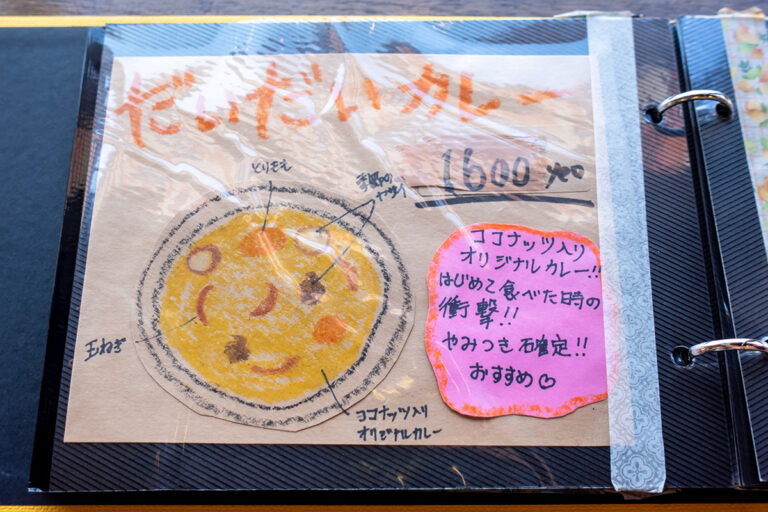 だいだいカレー
1600 yen
とりもも
季節の
ヤサイ
ココナッツ入り
オリジナルカレー!!
はじめて食べた時の
衝撃!!
やみつき確定!!
おすすめ♡
玉ねぎ
ココナッツ入り
オリジナルカレー